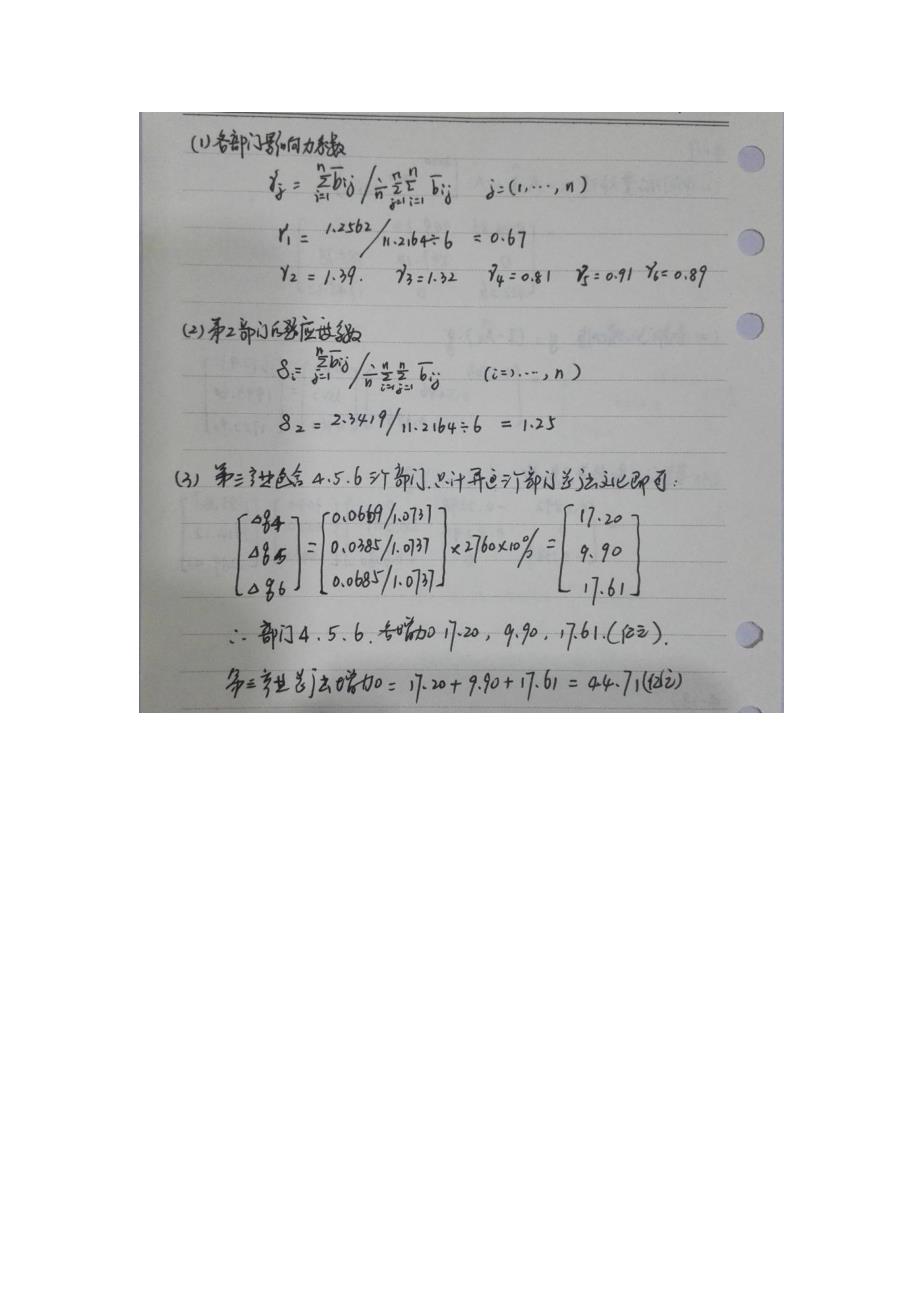 (1) 各部门影响力系数
γj = Σ(i=1→n) b̄ij / (1/n) Σ(j=1→n) Σ(i=1→n) b̄ij  j=(1,⋯,n)
γ1 = 1.2562/11.2164÷6 = 0.67
γ2 = 1.39. γ3=1.32 γ4=0.81 γ5=0.91 γ6=0.89
(2) 第2部门的感应度系数
δi = Σ(j=1→n) b̄ij / (1/n) Σ(i=1→n) Σ(j=1→n) b̄ij (i=1,⋯,n)
δ2 = 2.3419/11.2164÷6 = 1.25
(3) 第三产业包含4.5.6三个部门.只计算这三个部门总产出变化即可:
[Δq4] [0.0669/1.0737] [17.20]
[Δq5] = [0.0385/1.0737] ×2760×10% = [9.90]
[Δq6] [0.0685/1.0737] [17.61]
∴ 部门4.5.6.各增加 17.20, 9.90, 17.61.(亿元).
第三产业总产出增加 = 17.20+9.90+17.61 = 44.71(亿元)